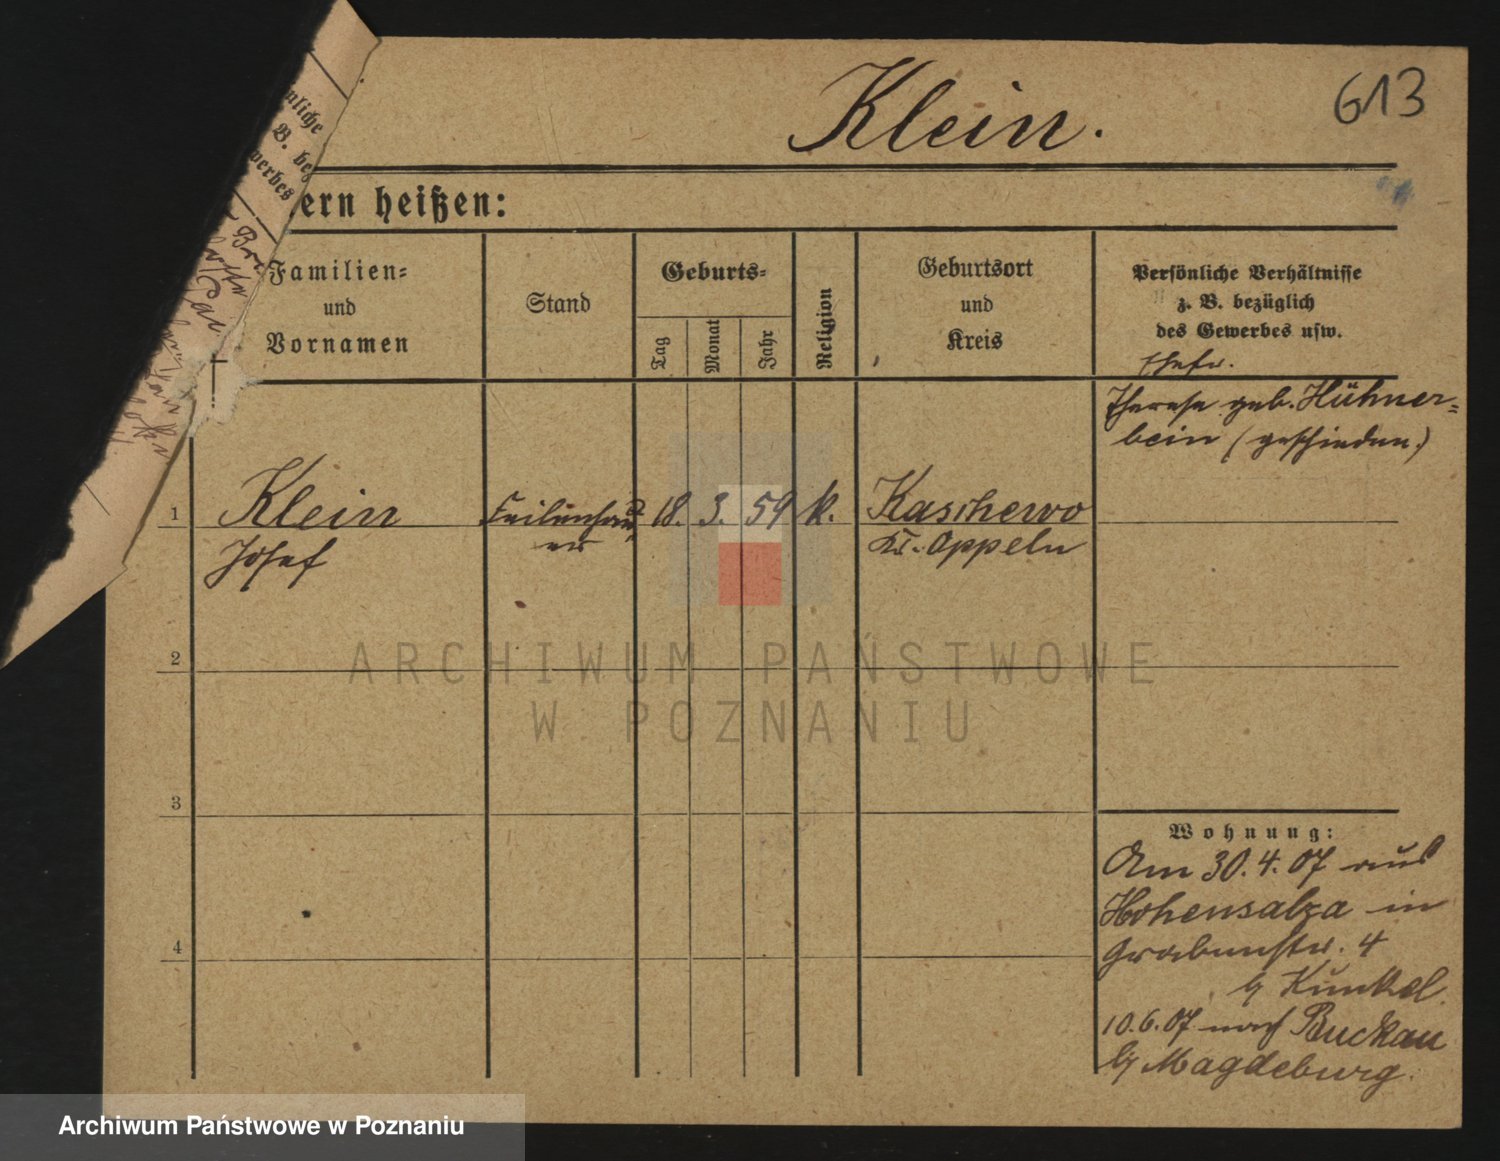 Klein.
613
ern heißen:
nliche
B. bez
werbes
Familien-
und
Vornamen
Stand
Geburts-
Tag
Monat
Jahr
Religion
Geburtsort
und
Kreis
Persönliche Verhältnisse
z. B. bezüglich
des Gewerbes usw.
Ehefr.
Therese geb. Hühner-
bein (geschieden)
1
Klein
Josef
Feilenhau-
er
18. 3. 59
k.
Kaschewo
Kr. Oppeln
2
3
4
Wohnung:
Am 30.4.07 aus
Hohensalza in
Grabenstr. 4
b/ Kunkel.
10.6.07 nach Buckau
b/ Magdeburg.
ARCHIWUM PAŃSTWOWE
W POZNANIU
Archiwum Państwowe w Poznaniu